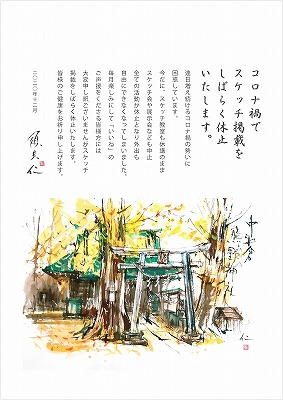 コロナ禍で
スケッチ掲載を
しばらく休止
いたします。
連日増え続けるコロナ禍の勢いに
困惑しています。
今だに、スケッチ教室も休講のまま
スケッチ会や展示会なども中止
全ての活動が休止となり外出も
自由にできなくなってしまいました。
毎月楽しみにして「いいね」の
ご声援をくださる皆様方には
大変申し訳ございませんがスケッチ
掲載をしばらく休止いたします。
皆様のご健康をお祈り申し上げます。
二〇二〇年十二月
仁